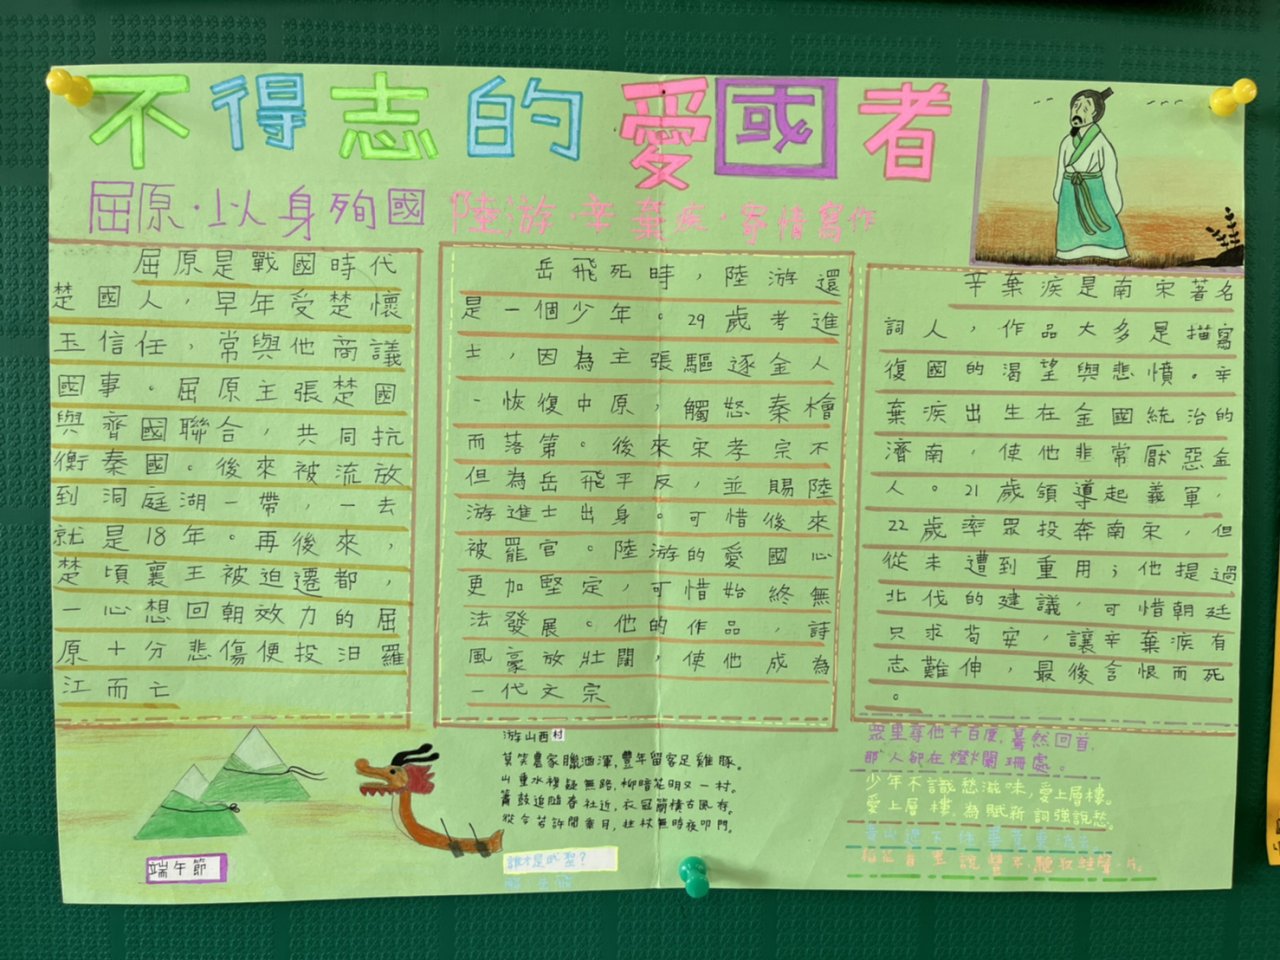 不得志的愛國者
屈原·以身殉國 陸游·辛棄疾·寄情寫作
屈原是戰國時代
楚國人，早年受楚懷
王信任，常與他商議
國事。屈原主張楚國
與齊國聯合，共同抗
衡秦國。後來被流放
到洞庭湖一帶，一去
就是18年。再後來，
楚頃襄王被迫遷都，
一心想回朝效力的屈
原十分悲傷便投汨羅
江而亡
岳飛死時，陸游還
是一個少年。29歲考進
士，因為主張驅逐金人
、恢復中原，觸怒秦檜
而落第。後來宋孝宗不
但為岳飛平反，並賜陸
游進士出身。可惜後來
被罷官。陸游的愛國心
更加堅定，可惜始終無
法發展。他的作品，詩
風豪放壯闊，使他成為
一代文宗
辛棄疾是南宋著名
詞人，作品大多是描寫
復國的渴望與悲憤。辛
棄疾出生在金國統治的
濟南，使他非常厭惡金
人。21歲領導起義軍，
22歲率眾投奔南宋，但
從未遭到重用；他提過
北伐的建議，可惜朝廷
只求苟安，讓辛棄疾有
志難伸，最後含恨而死
。
端午節
游山西村
莫笑農家臘酒渾，豐年留客足雞豚。
山重水複疑無路，柳暗花明又一村。
簫鼓追隨春社近，衣冠簡樸古風存。
從今若許閒乘月，拄杖無時夜叩門。
誰才是
眾里尋他千百度，驀然回首，
那人卻在燈火闌珊處。
少年不識愁滋味，愛上層樓。
愛上層樓，為賦新詞強說愁。
青山遮不住畢竟東流去
稻花香里說豐年，聽取蛙聲一片。